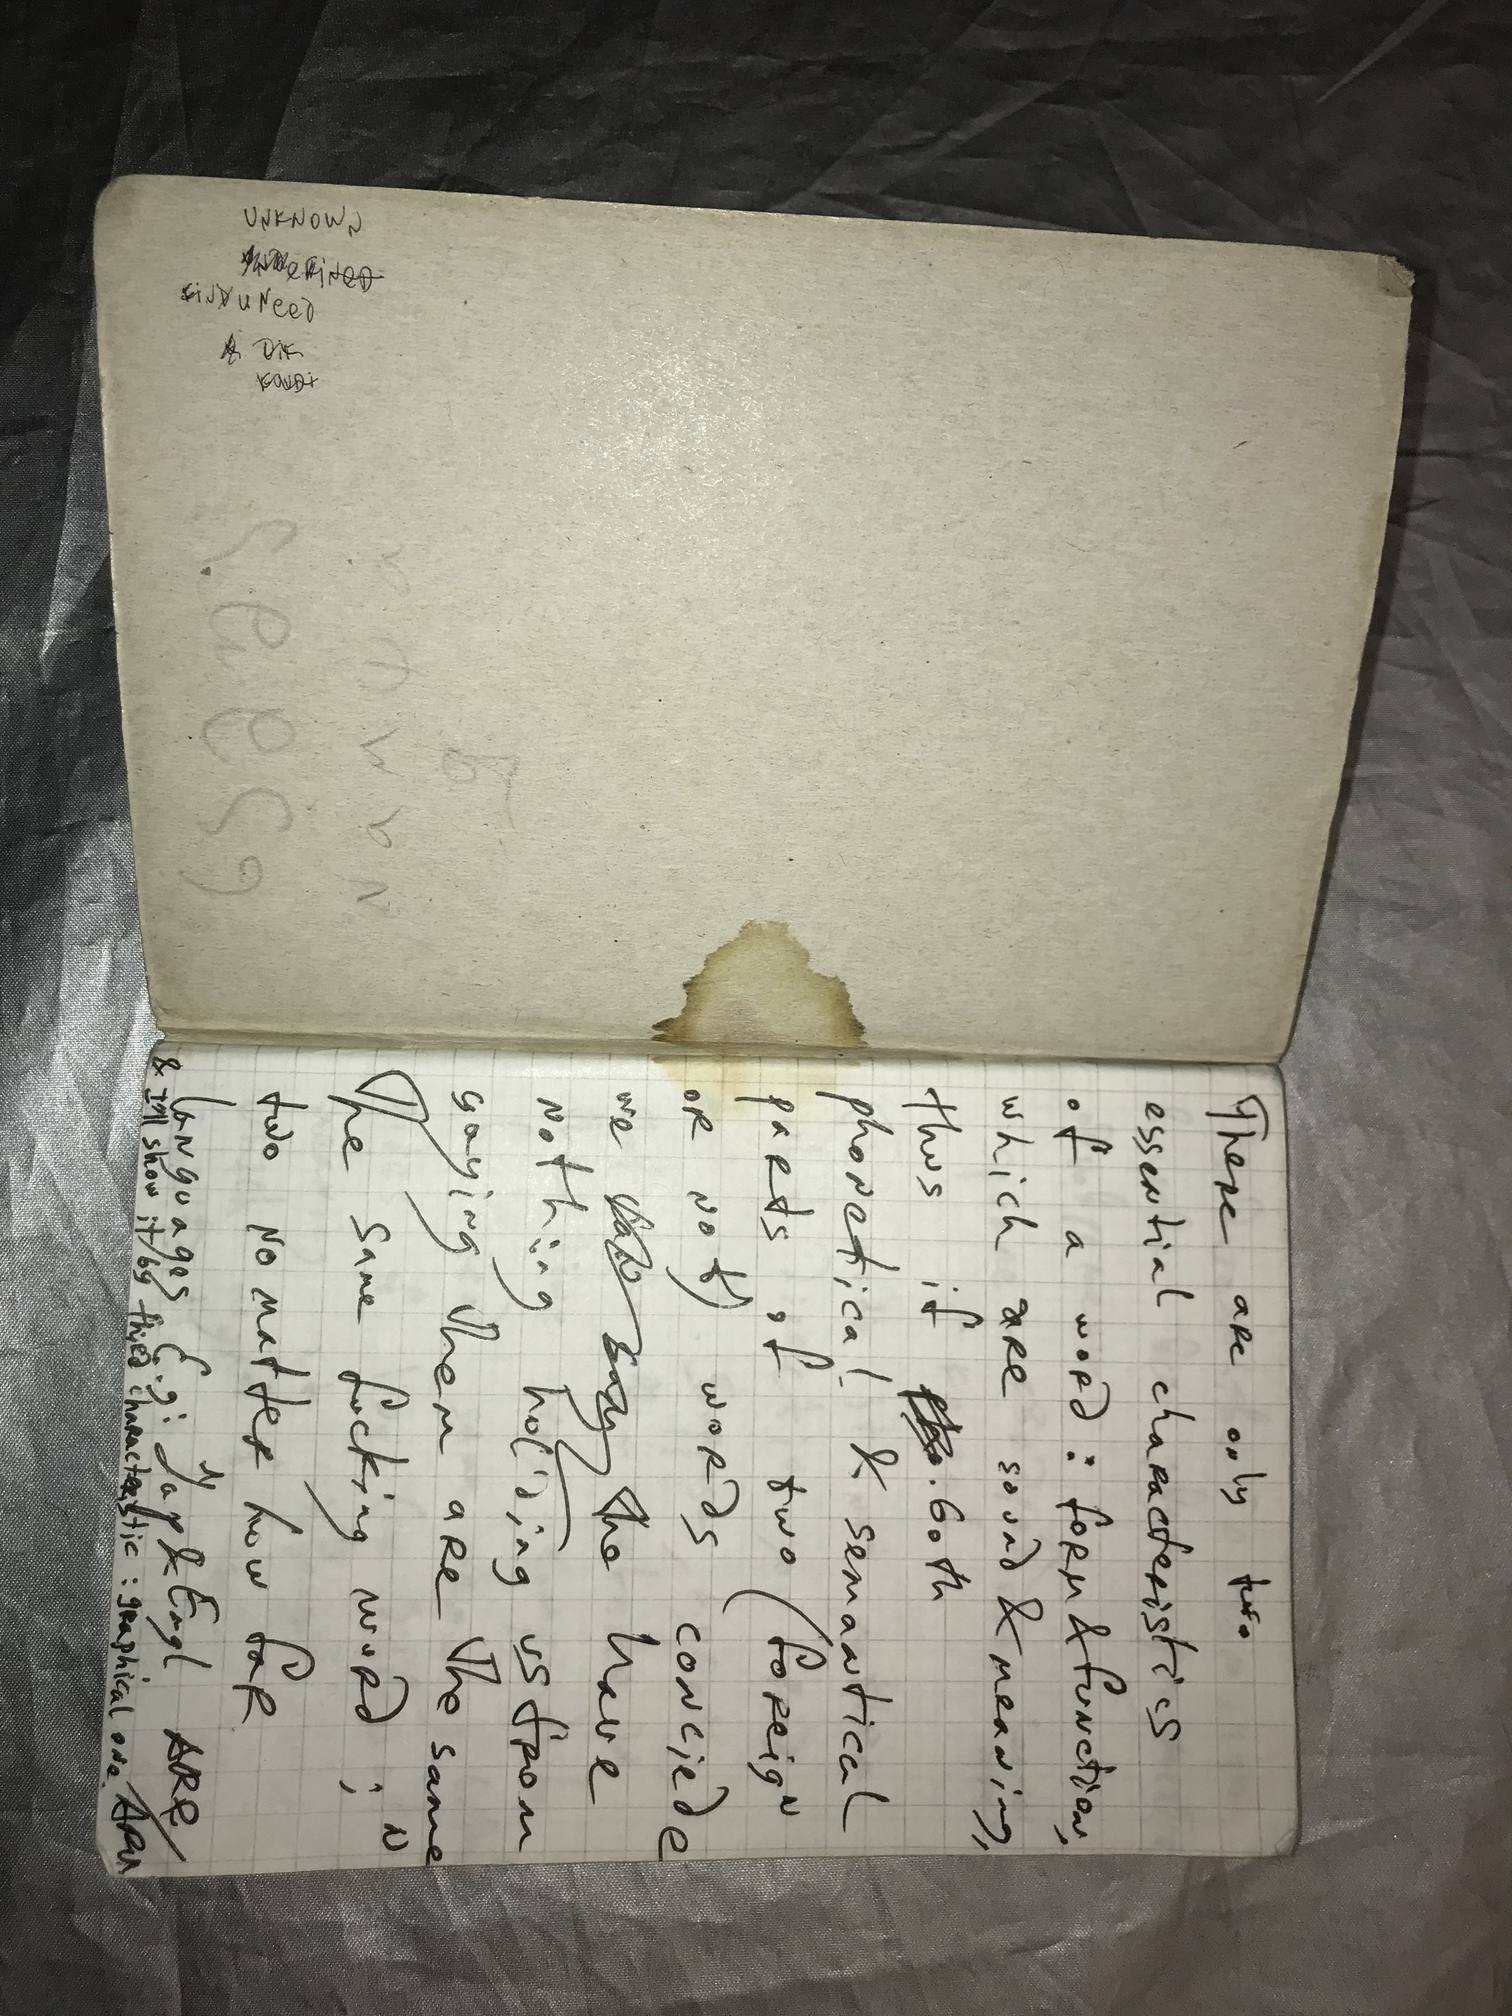 UNKNOWN
UNeeD
There are only two
essential characteristics
of a word: form & function,
which are sound & meaning,
thus if both
phonetical & semantical
parts of two (foreign
or not) words conciede
we say the have
nothing holding us from
saying them are the same
The same fucking word;
two no matter how far
languages E.g: Jap & Engl ARE
& I'll show it/by third characteristic: graphical one.